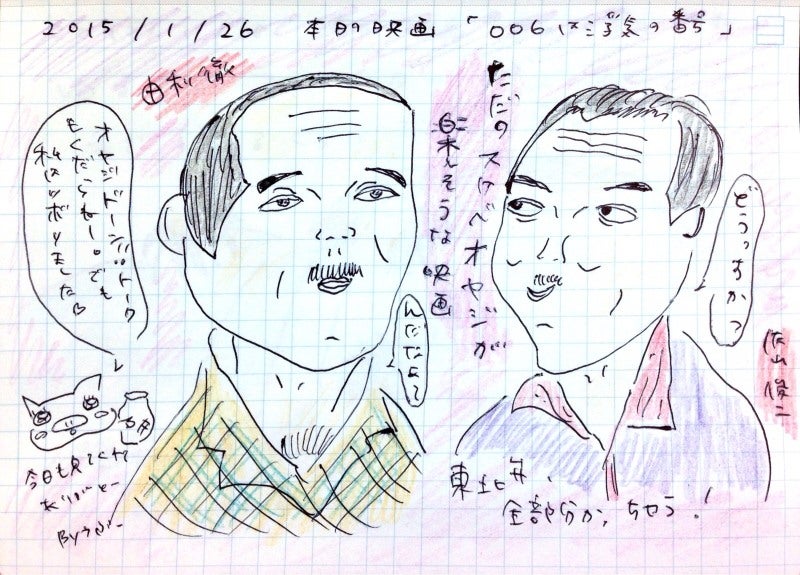 2015/1/26 本日の映画 「006は浮気の番号」
由利徹
ただのスケベオヤジが
楽しそうな映画
くだらねー。でも
私はツボりました♡
どうっすか?
んだなよ〜
佐山俊二
今日も見てくれて
ありがとー
By
東北弁、
全部分かっちゃう!